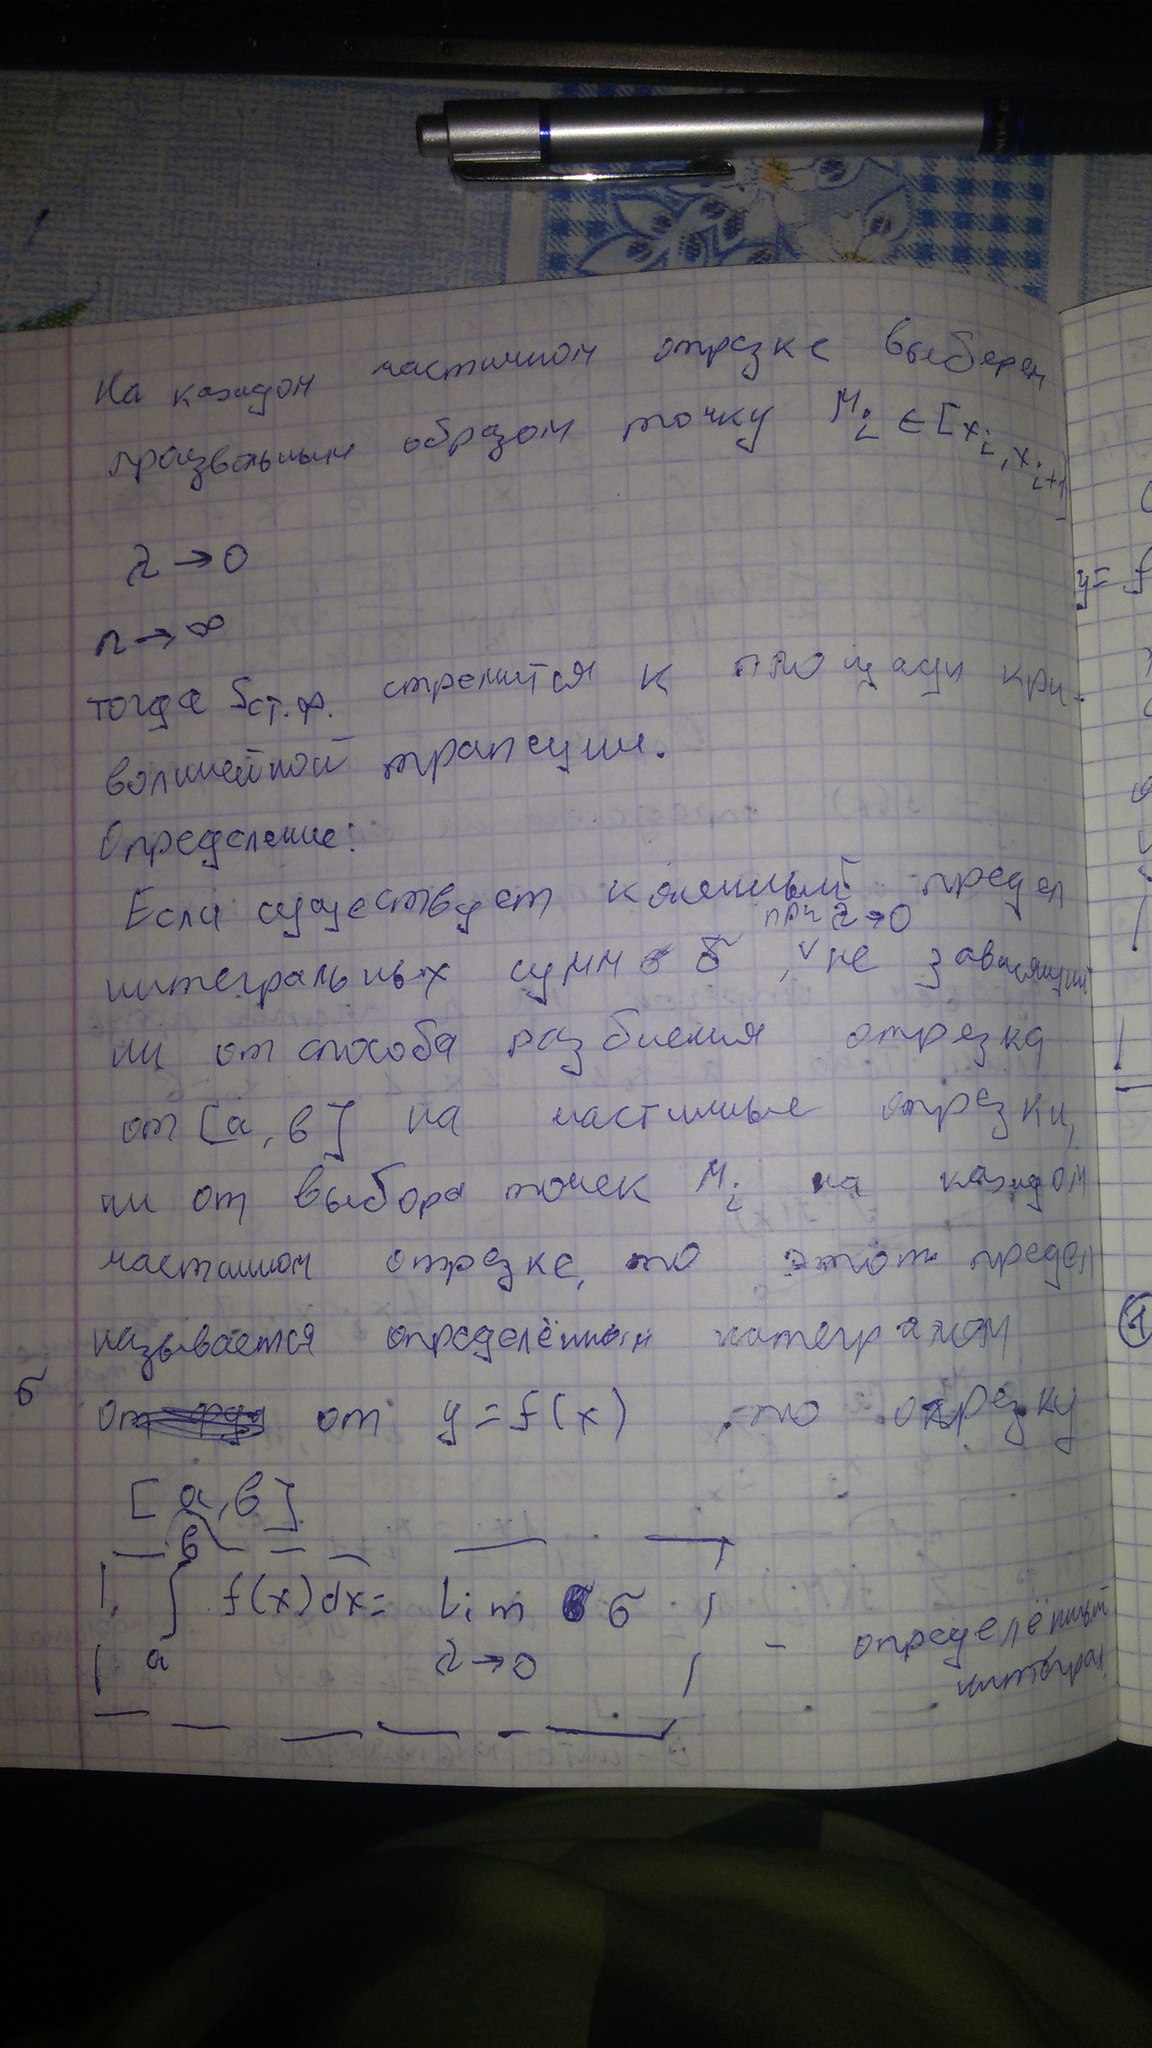 На каждом частичном отрезке выберем
произвольным образом точку Mᵢ ∈ [xᵢ, xᵢ₊₁]
λ → 0
n → ∞
тогда Sст.ф. стремится к площади кри-
волинейной трапеции.
Определение:
Если существует конечный предел
при λ→0
интегральных сумм σ, не зависящий
ни от способа разбиения отрезка
от [a, b] на частичные отрезки,
ни от выбора точек Mᵢ на каждом
частичном отрезке, то этот предел
называется определённым интегралом
σ
от y = f(x), по отрезку
[a, b]
b
∫ f(x)dx = lim σ
a λ→0
- определённый
интеграл
y = f
1